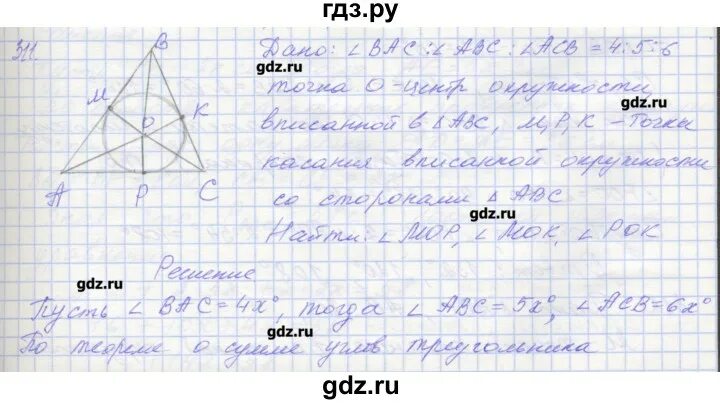 гдз.ру
311.
Дано: ∠BAC : ∠ABC : ∠ACB = 4:5:6
gdz.ru
точка O - центр окружности,
gdz.ru
вписанной в △ABC, M, P, K - точки
касания вписанной окружности
gdz.ru
со сторонами △ABC
gdz.ru
Найти: ∠MOP, ∠MOK, ∠POK
B
M
K
O
A
P
C
Решение
gdz.ru
Пусть ∠BAC = 4x°, тогда ∠ABC = 5x°, ∠ACB = 6x°
По теореме о сумме углов треугольника
gdz.ru